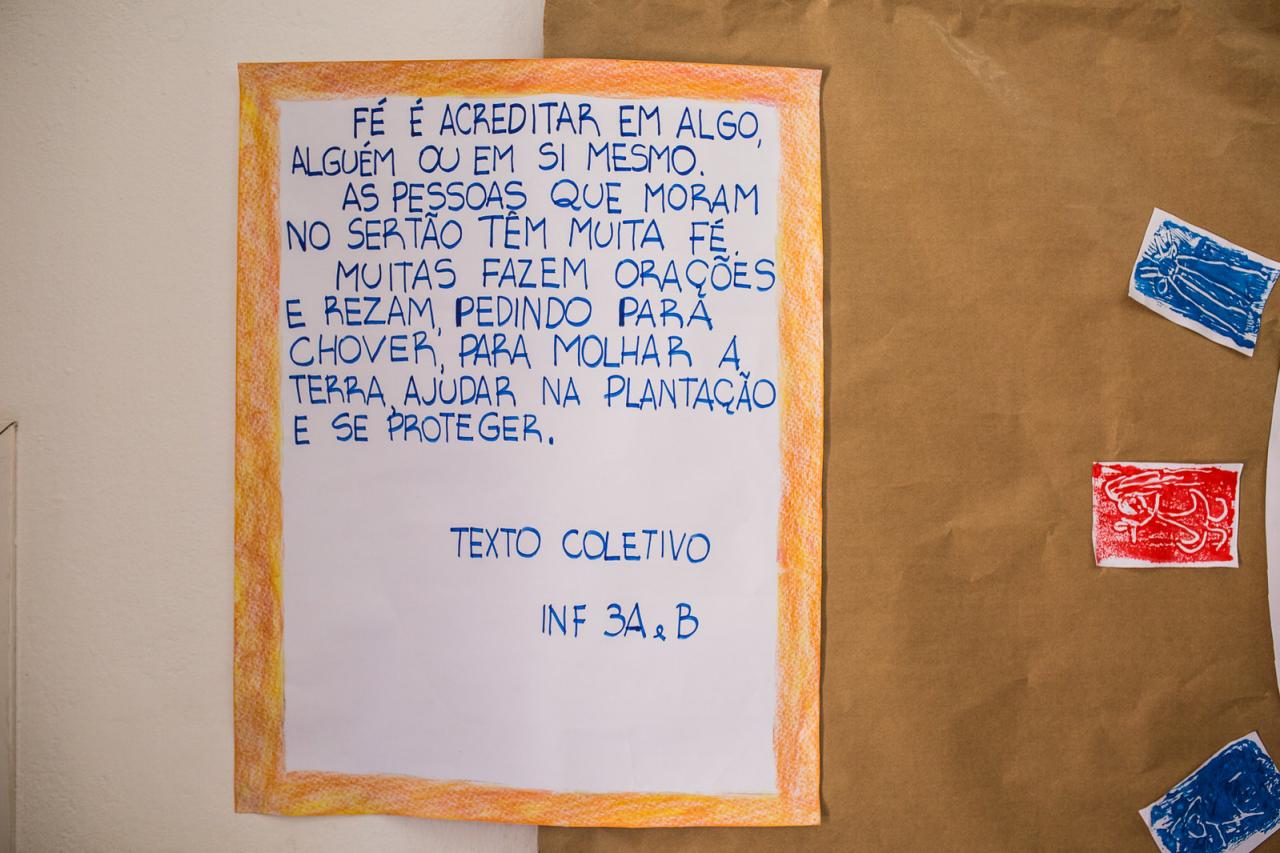 FÉ É ACREDITAR EM ALGO,
ALGUÉM OU EM SI MESMO.
AS PESSOAS QUE MORAM
NO SERTÃO TÊM MUITA FÉ.
MUITAS FAZEM ORAÇÕES
E REZAM, PEDINDO PARA
CHOVER, PARA MOLHAR A
TERRA, AJUDAR NA PLANTAÇÃO
E SE PROTEGER.
TEXTO COLETIVO
INF 3A e B